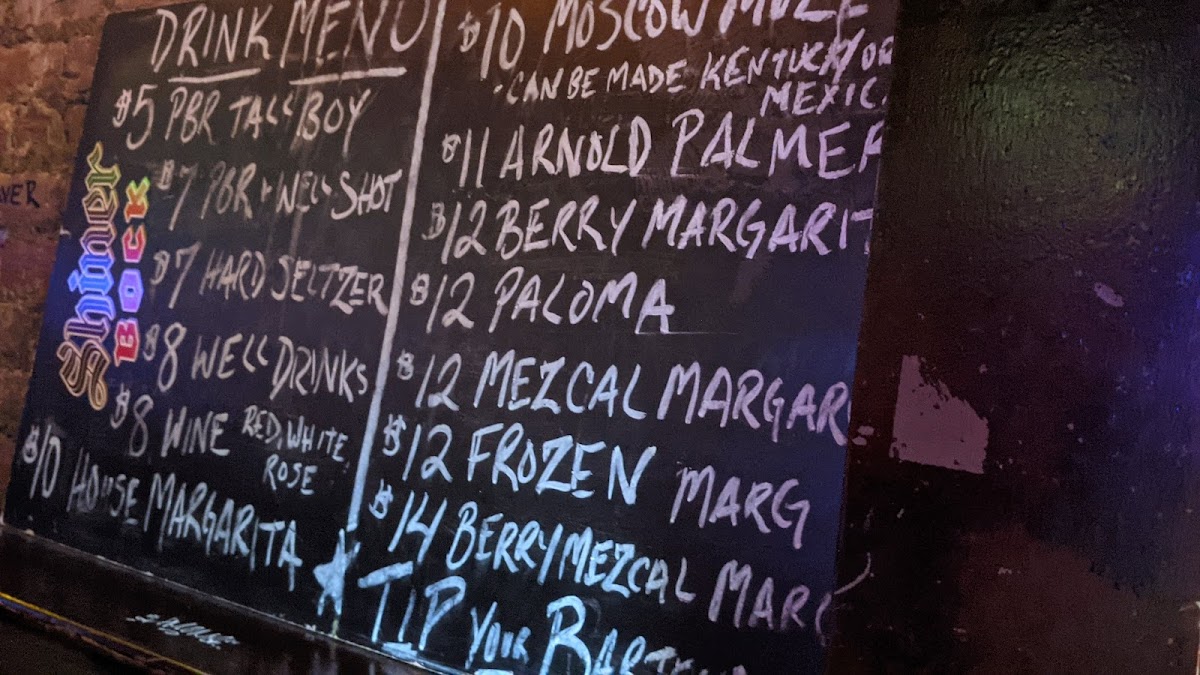 DRINK MENU
$5 PBR TALL BOY
$7 PBR + WELL SHOT
$7 HARD SELTZER
$8 WELL DRINKS
$8 WINE RED, WHITE
ROSE
$10 HOUSE MARGARITA
Shiner
BOCK
$10 MOSCOW MULE
CAN BE MADE KENTUCKY OR
MEXIC
$11 ARNOLD PALMER
$12 BERRY MARGARIT
$12 PALOMA
$12 MEZCAL MARGAR
$12 FROZEN MARG
$14 BERRY MEZCAL MARG
TIP YOUR BARTEN